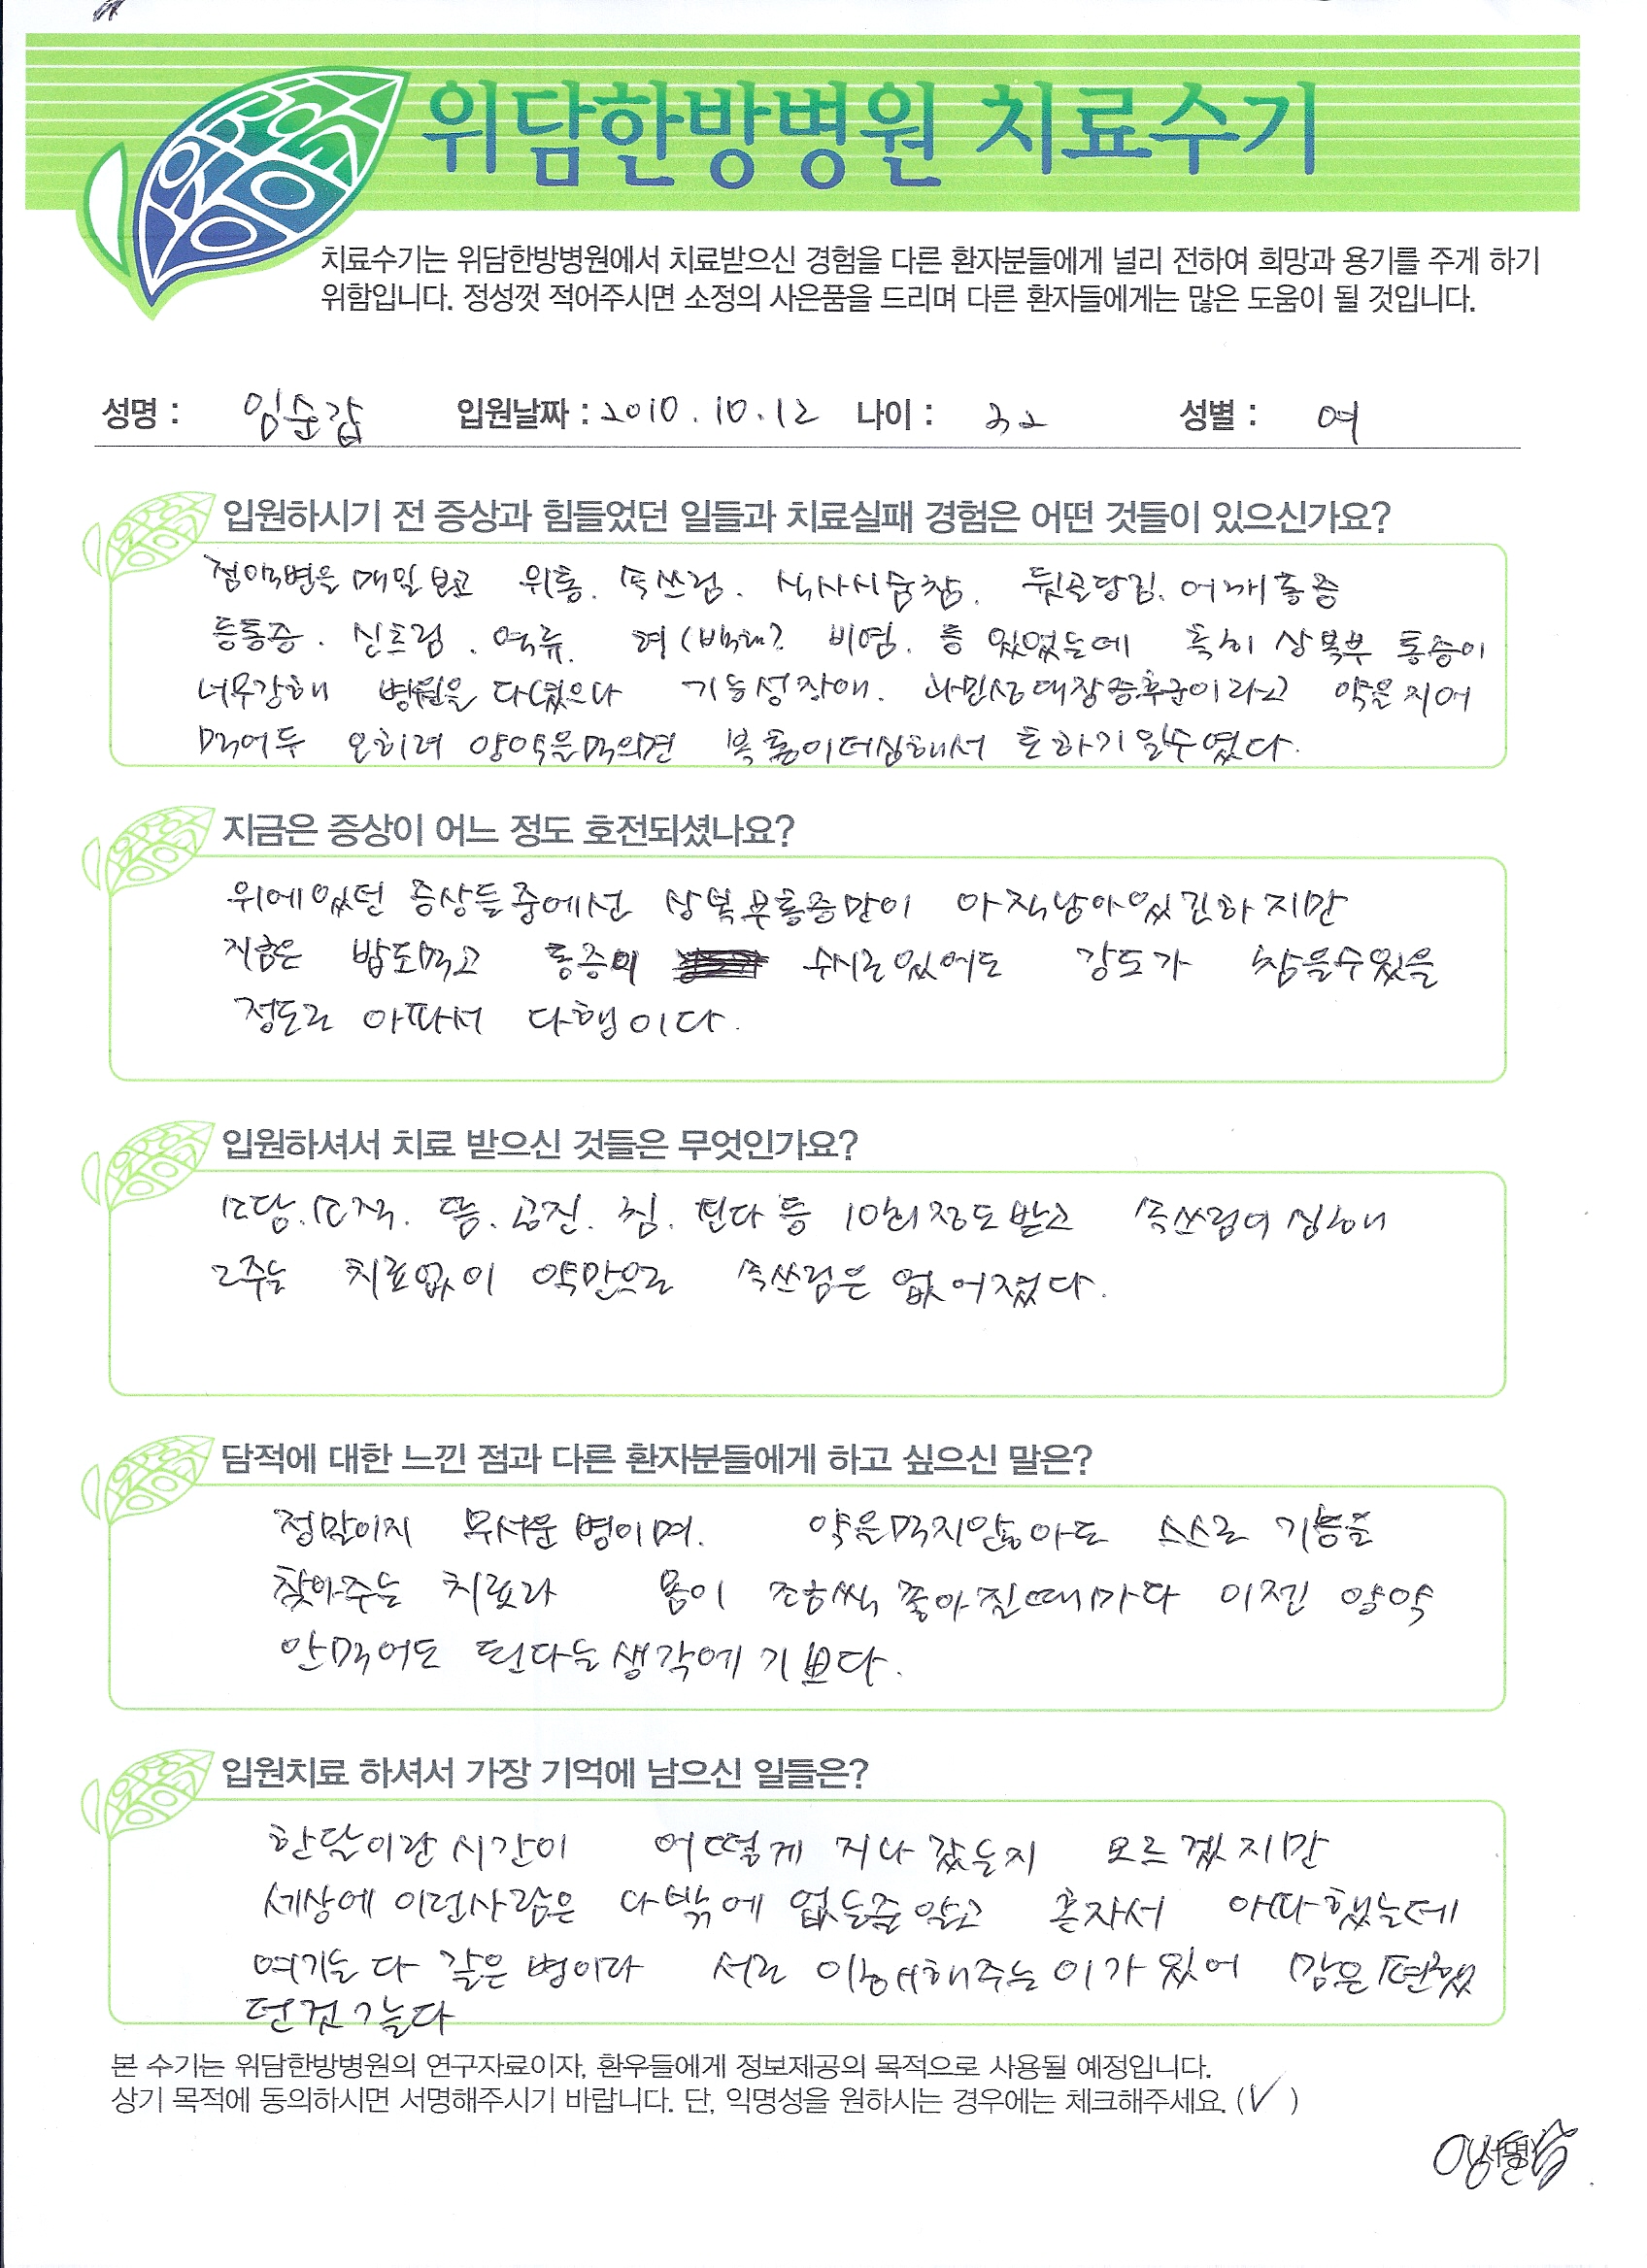 위담한방병원 치료수기
치료수기는 위담한방병원에서 치료받으신 경험을 다른 환자분들에게 널리 전하여 희망과 용기를 주게 하기
위함입니다. 정성껏 적어주시면 소정의 사은품을 드리며 다른 환자들에게는 많은 도움이 될 것입니다.
성명 : 임순갑 입원날짜 : 2010. 10. 12 나이 : 32 성별 : 여
입원하시기 전 증상과 힘들었던 일들과 치료실패 경험은 어떤 것들이 있으신가요?
점액변을 매일 보고 위통. 속쓰림. 식사시숨참. 뒷골당김. 어깨통증
등통증. 신트림. 역류. 혀(백태? 비염. 등 있었는데 특히 상복부 통증이
너무강해 병원을 다녔으나 기능성장애. 과민성대장증후군이라고 약을 지어
먹어두 오히려 양약을먹의면 복통이더심해서 토하기 일수였다.
지금은 증상이 어느 정도 호전되셨나요?
위에있던 증상들중에선 상복부통증만이 아직남아있긴하지만
지금은 밥도먹고 통증이 수시로있어도 강도가 참을수있을
정도로 아파서 다행이다.
입원하셔서 치료 받으신 것들은 무엇인가요?
소담. 소적. 뜸. 공진. 침. 틴다 등 10회정도받고 속쓰림이심해
2주는 치료없이 약만으로 속쓰림은 없어졌다.
담적에 대한 느낀 점과 다른 환자분들에게 하고 싶으신 말은?
정말이지 무서운 병이며. 약을먹지않아도 스스로 기능을
찾아주는 치료라 몸이 조금씩 좋아질때마다 이젠 양약
안먹어도 된다는생각에 기쁘다.
입원치료 하셔서 가장 기억에 남으신 일들은?
한달이란시간이 어떻게 지나갔는지 모르겠지만
세상에 이런사람은 나밖에 없는줄알고 혼자서 아파했는데
여기는 다 같은병이라 서로 이해해주는이가 있어 맘은 편했
던것 같다
본 수기는 위담한방병원의 연구자료이자, 환우들에게 정보제공의 목적으로 사용될 예정입니다.
상기 목적에 동의하시면 서명해주시기 바랍니다. 단, 익명성을 원하시는 경우에는 체크해주세요. (√)